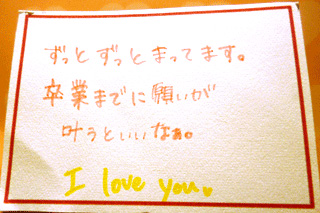 ずっとずっとまってます。
卒業までに願いが
叶うといいなぁ。
I love you.